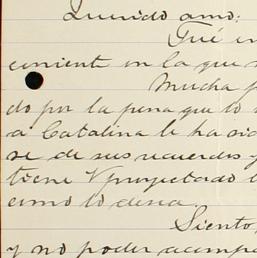 Querido amo:
Qué in
conient en la que s
Mucha p
do por la pena que lo s
a Catalina le ha sid
se de sus recuerdos y
tiene V proyectado l
como lo desea.
Siento,
y no poder acompa